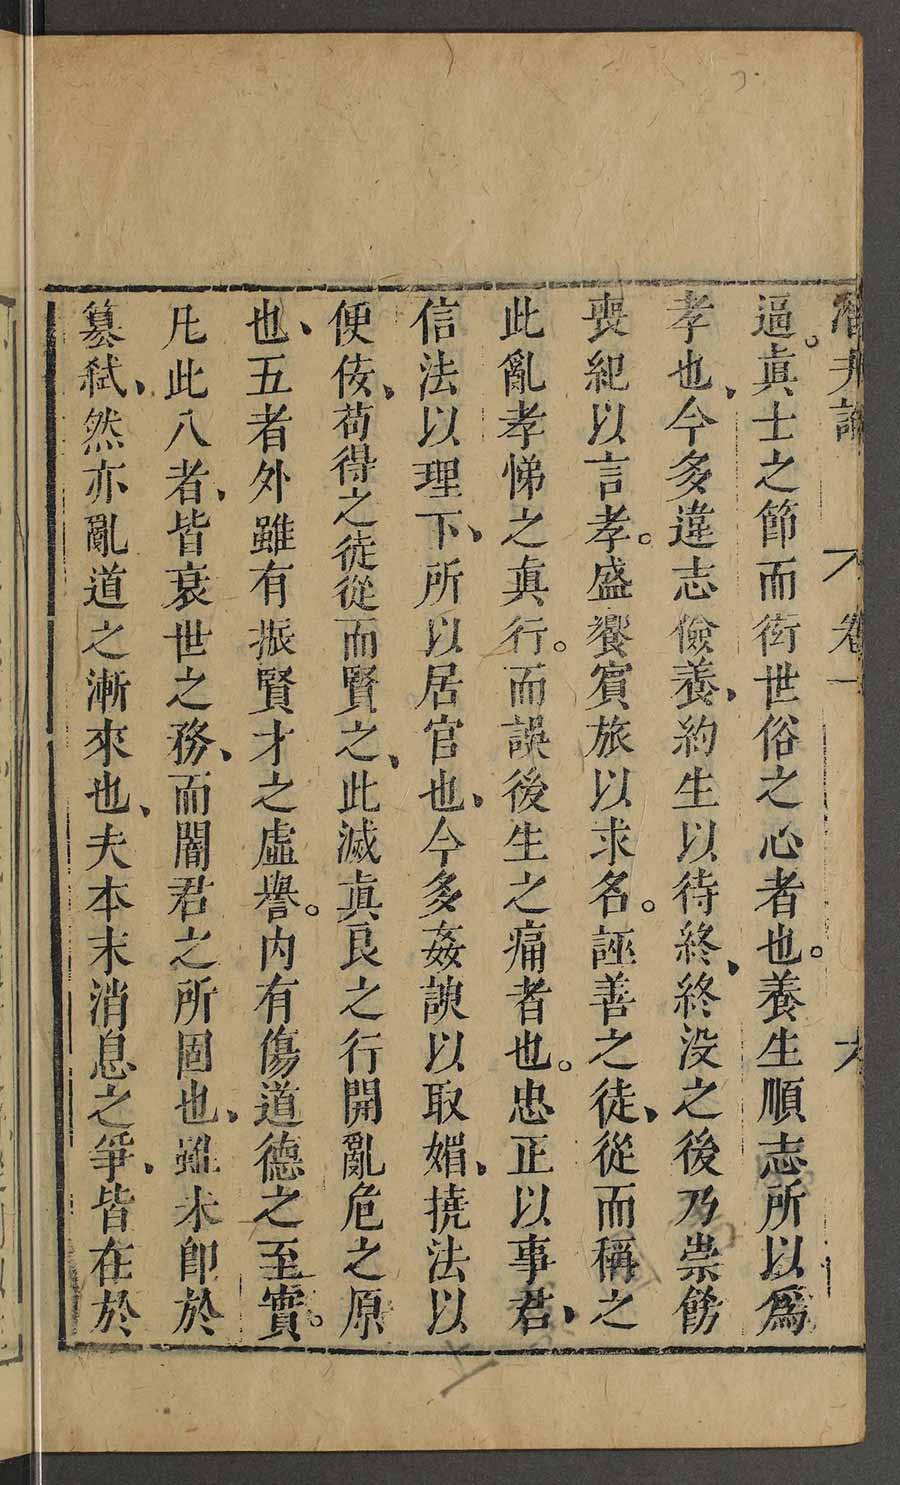 潛夫論 卷一 六
逼。眞士之節而衒世俗之心者也。養生順志所以爲
孝也、今多違志儉養、約生以待終、終没之後乃崇餝
喪紀以言孝。盛饗賓旅以求名。誣善之徒、從而稱之
此亂孝悌之眞行。而誤後生之痛者也。忠正以事君、
信法以理下、所以居官也、今多姦諛以取媚、撓法以
便佞、苟得之徒從而賢之、此滅眞良之行開亂危之原
也、五者外雖有振賢才之虛譽。内有傷道德之至實。
凡此八者、皆衰世之務、而闇君之所固也、雖未即於
篡弑、然亦亂道之漸來也、夫本末消息之爭、皆在於